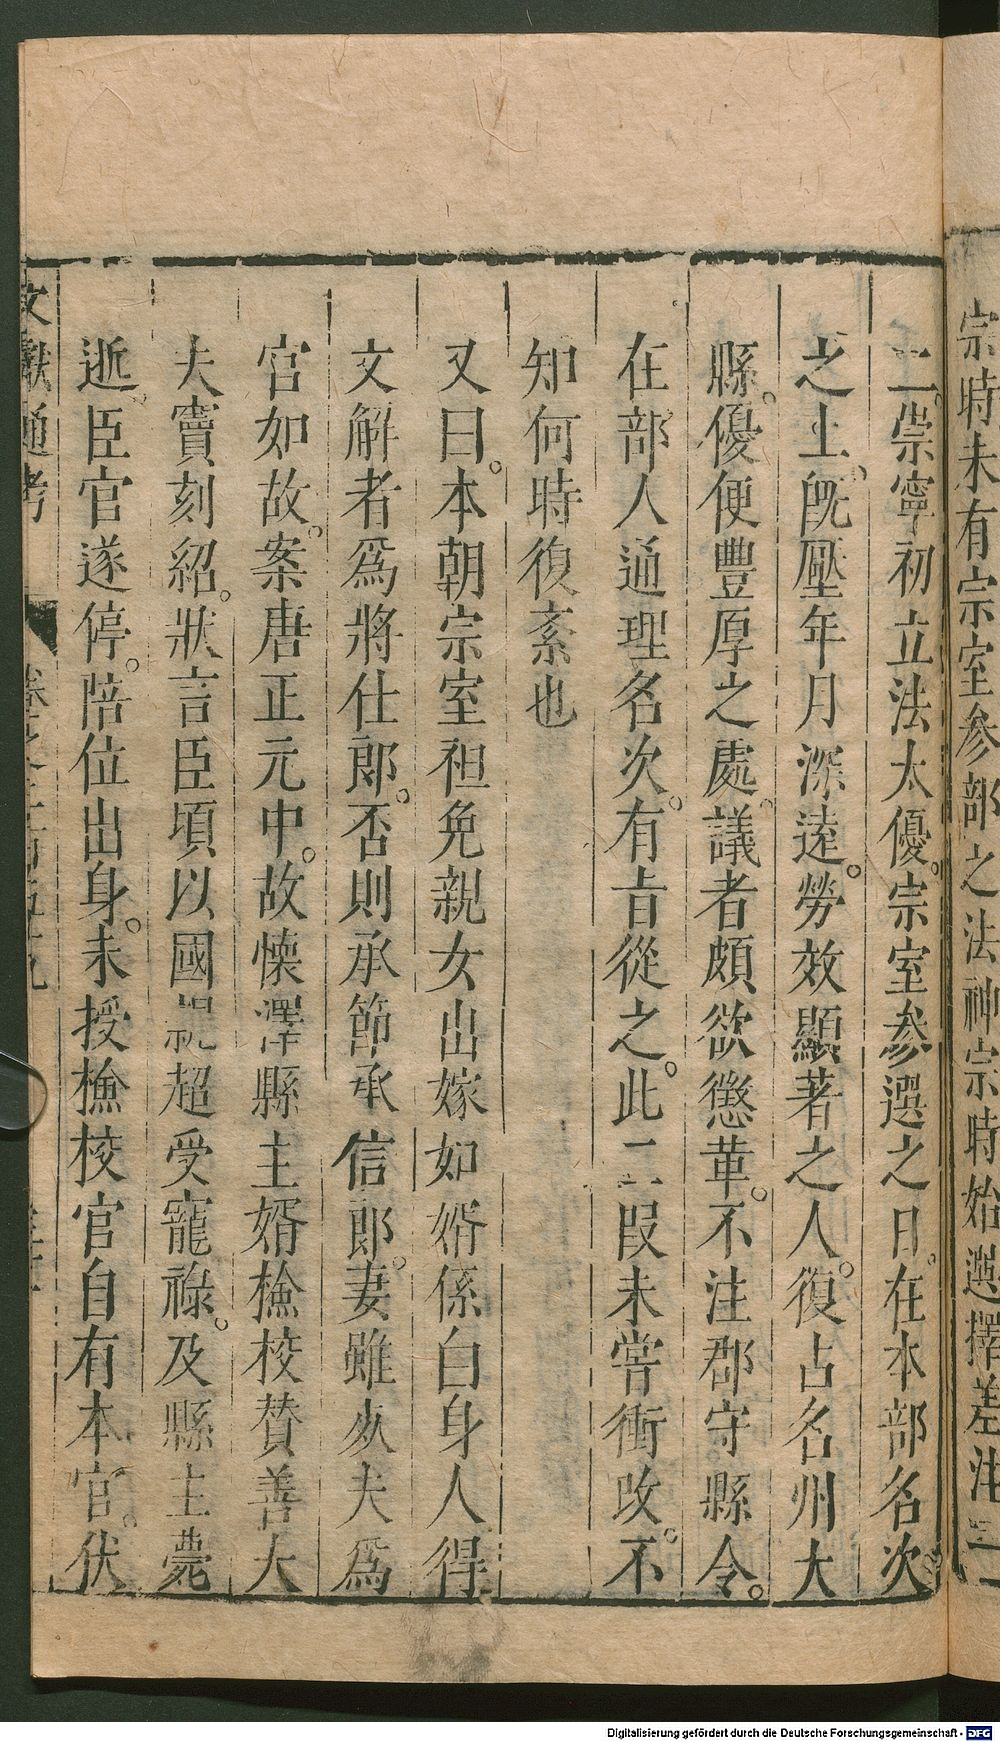 宗時未有宗室參部之法神宗時始選擇差注
二崇寧初立法太優宗室參選之日在本部名次
之上既壓年月深遠勞效顯著之人復占名州大
縣優便豐厚之處議者頗欲懲革不注郡守縣令
在部人通理名次有旨從之此二段未嘗衝改不
知何時復紊也
又曰本朝宗室袒免親女出嫁如婿係白身人得
文解者爲將仕郎否則承節承信郎妻雖亥夫爲
官如故案唐正元中故懷澤縣主婿檢校贊善大
夫竇刻紹狀言臣頃以國親超受寵祿及縣主薨
逝臣官遂停陪位出身未授檢校官自有本官伏
文獻通考
Digitalisierung gefördert durch die Deutsche Forschungsgemeinschaft - DFG